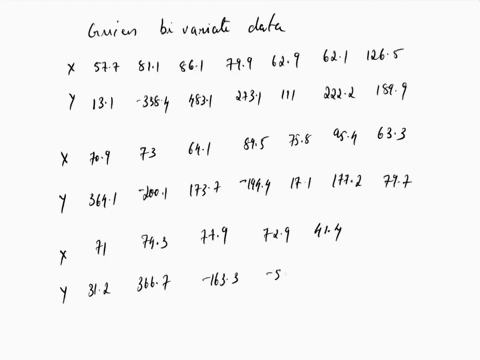 Given bivariate data
X 57.7 81.1 86.1 79.9 62.9 62.1 126.5
Y 13.1 -338.4 483.1 273.1 111 222.2 189.9
X 70.9 73 64.1 89.5 75.8 95.4 63.3
Y 364.1 -200.1 173.7 -194.4 17.1 177.2 79.7
X 71 74.3 77.9 72.9 41.4
Y 31.2 366.7 -163.3 -5